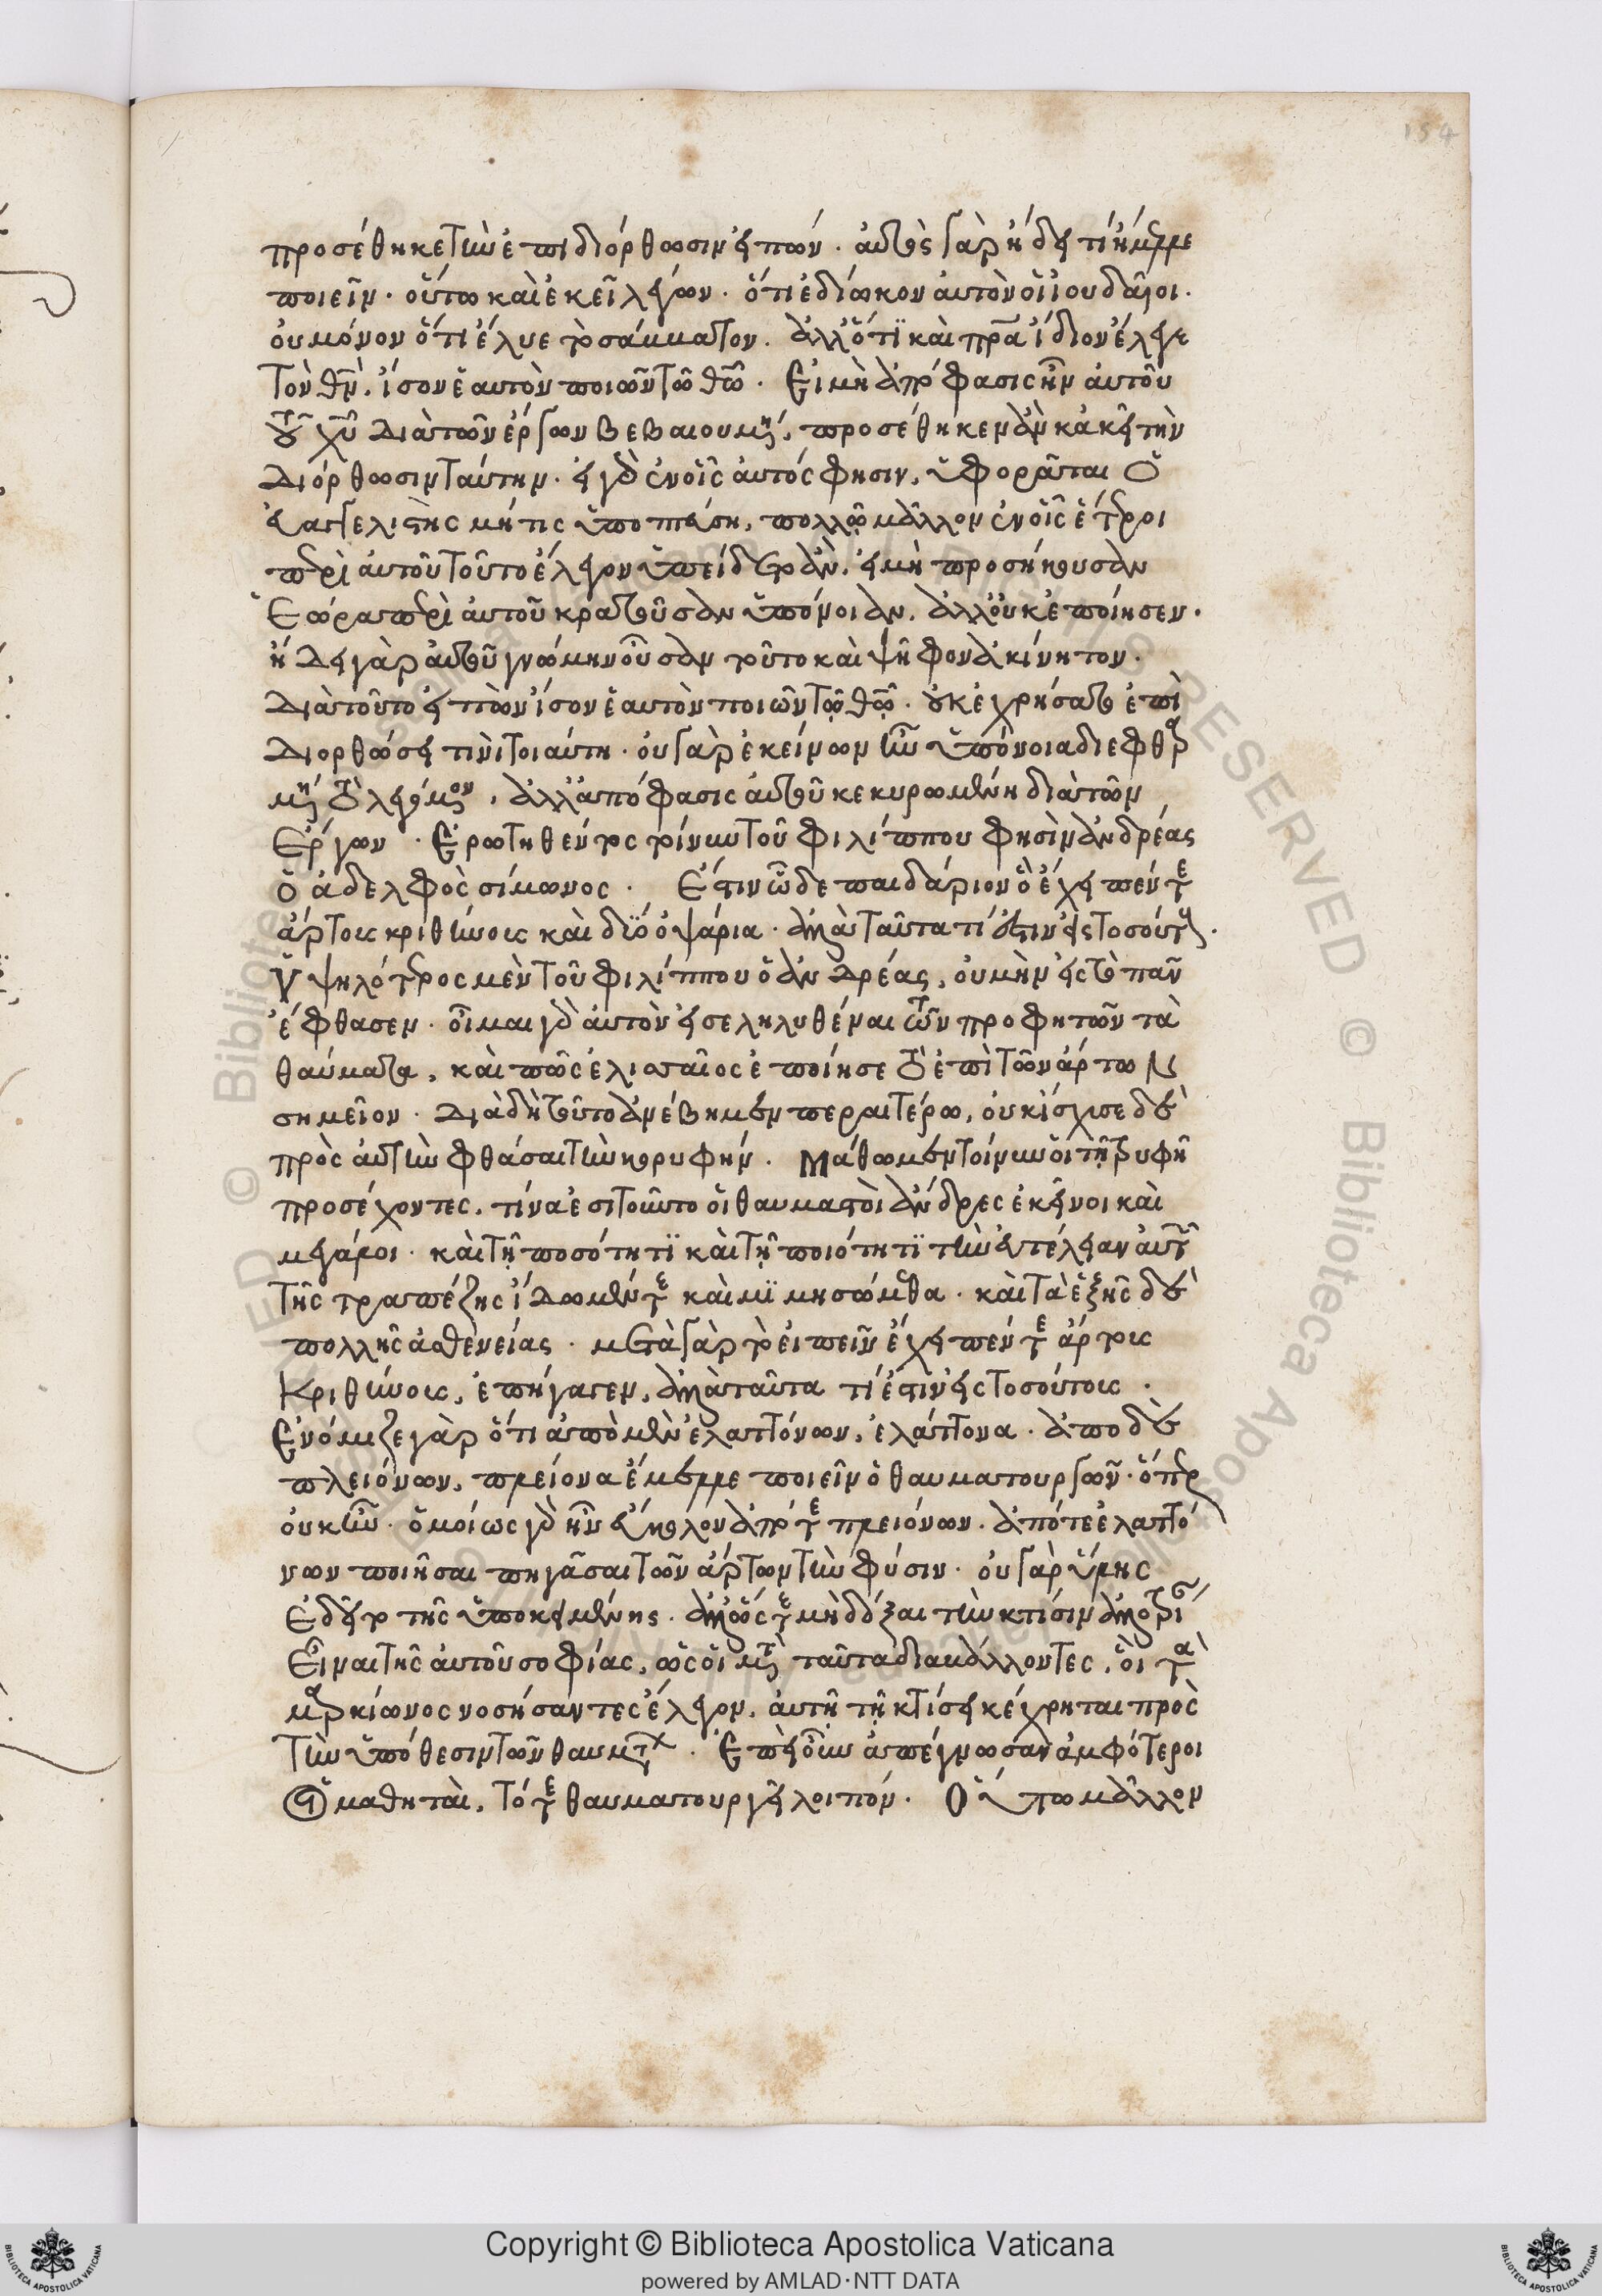 προσέθηκε τὴν ἐπιδιόρθωσιν εἰπών· αὐτὸς γὰρ ἤδει τί ἤμελλε
ποιεῖν· οὕτω καὶ ἐκεῖ λέγων· ὅτι ἐδίωκον αὐτὸν οἱ ἰουδαῖοι·
οὐ μόνον ὅτι ἔλυε τὸ σάββατον. ἀλλ' ὅτι καὶ πρα ἴδιον ἔλεγε
τὸν θν, ἴσον ἑαυτὸν ποιῶν τῶ θω. Εἰ μὴ ἀπόφασις ἦν αὐτοῦ
τοῦ χυ διὰ τῶν ἔργων βεβαιουμένη, προσέθηκεν ἂν κἀκεῖ τὴν
διόρθωσιν ταύτην. εἰ γὰρ ἐν οἷς αὐτός φησιν, ὑφορᾶται ὁ
εὐαγγελιστὴς μή τις ὑποπτεύση, πολλῷ μᾶλλον ἐν οἷς ἕτεροι
περὶ αὐτοῦ τοῦτο ἔλεγον ὑπείδετο ἄν, εἰ μὴ προσήκουσαν
ἑώρα περὶ αὐτοῦ κρατοῦσαν ὑπόνοιαν. ἀλλ' οὐκ ἐποίησεν.
ἤδει γὰρ αὐτοῦ γνώμην οὖσαν τοῦτο καὶ ψῆφον ἀκίνητον.
διὰ τοῦτο εἰπὼν ἴσον ἑαυτὸν ποιῶν τῷ θῷ. οὐκ ἐχρήσατο ἐπι
διορθώσει τινὶ τοιαύτη. οὐ γὰρ ἐκείνων ἦν ὑπόνοια διεφθαρ
μένη τὸ λεγόμενον, ἀλλ' ἀπόφασις αὐτοῦ κεκυρωμένη διὰ τῶν
Ἔργων. Ἐρωτηθέντος τοίνυν τοῦ φιλίππου φησὶν ἀνδρέας
ὁ ἀδελφὸς σίμωνος. Ἔστιν ὧδε παιδάριον ὃ ἔχει πέντε
ἄρτους κριθίνους καὶ δύο ὀψάρια. ἀλλὰ ταῦτα τί ἐστιν εἰς τοσούτους.
Ὑψηλότερος μὲν τοῦ φιλίππου ὁ ἀνδρέας, οὐ μὴν εἰς τὸ πᾶν
ἔφθασεν. οἶμαι γὰρ αὐτὸν εἰσεληλυθέναι τῶν προφητῶν τὰ
θαύματα, καὶ πῶς ἐλισσαῖος ἐποίησε τὸ ἐπὶ τῶν ἄρτων
σημεῖον. διὰ δὴ τοῦτο ἀνέβη μὲν περαιτέρω, οὐκ ἴσχυσε δὲ
πρὸς αὐτὴν φθάσαι τὴν κορυφήν. Μάθωμεν τοίνυν οἱ τῇ τρυφῇ
προσέχοντες, τίνα ἐσιτοῦντο οἱ θαυμαστοὶ ἄνδρες ἐκεῖνοι καὶ
μεγάλοι. καὶ τῇ ποσότητι καὶ τῇ ποιότητι τὴν εὐτέλειαν αὐτῶν
τῆς τραπέζης ἴδωμέν τε καὶ μιμησώμεθα. καὶ τὰ ἑξῆς δὲ
πολλῆς ἀσθενείας. μετὰ γὰρ τὸ εἰπεῖν ἔχει πέντε ἄρτους
Κριθίνους, ἐπήγαγεν, ἀλλὰ ταῦτα τί ἐστιν εἰς τοσούτους.
Ἐνόμιζε γὰρ ὅτι ἀπὸ μὲν ἐλαττόνων, ἐλάττονα. ἀπὸ δὲ
πλειόνων, πλείονα ἔμελλε ποιεῖν ὁ θαυματουργῶν. ὅπερ
οὐκ ἦν. ὁμοίως γὰρ ἦν εὔκολον ἀπό τε πλειόνων. ἀπό τε ἐλαττό
νων ποιῆσαι πηγάσαι τῶν ἄρτων τὴν φύσιν. οὐ γὰρ ὕλης
ἐδεῖτο τῆς ὑποκειμένης. ἀλλ' ὥστε μὴ δόξαι τὴν κτίσιν ἀλλοτρίαν
Εἶναι τῆς αὐτοῦ σοφίας, ὡς οἱ μετὰ ταῦτα διαβάλλοντες, οἱ τὰ
μαρκίωνος νοσήσαντες ἔλεγον, αὐτῇ τῇ κτίσει κέχρηται πρὸς
τὴν ὑπόθεσιν τῶν θαυμάτων. Ἐπεὶ οὖν ἀπέγνωσαν ἀμφότεροι
οἱ μαθηταὶ, τότε θαυματουργεῖ λοιπόν. Οὕτω μᾶλλον
154
Copyright © Biblioteca Apostolica Vaticana
powered by AMLAD·NTT DATA